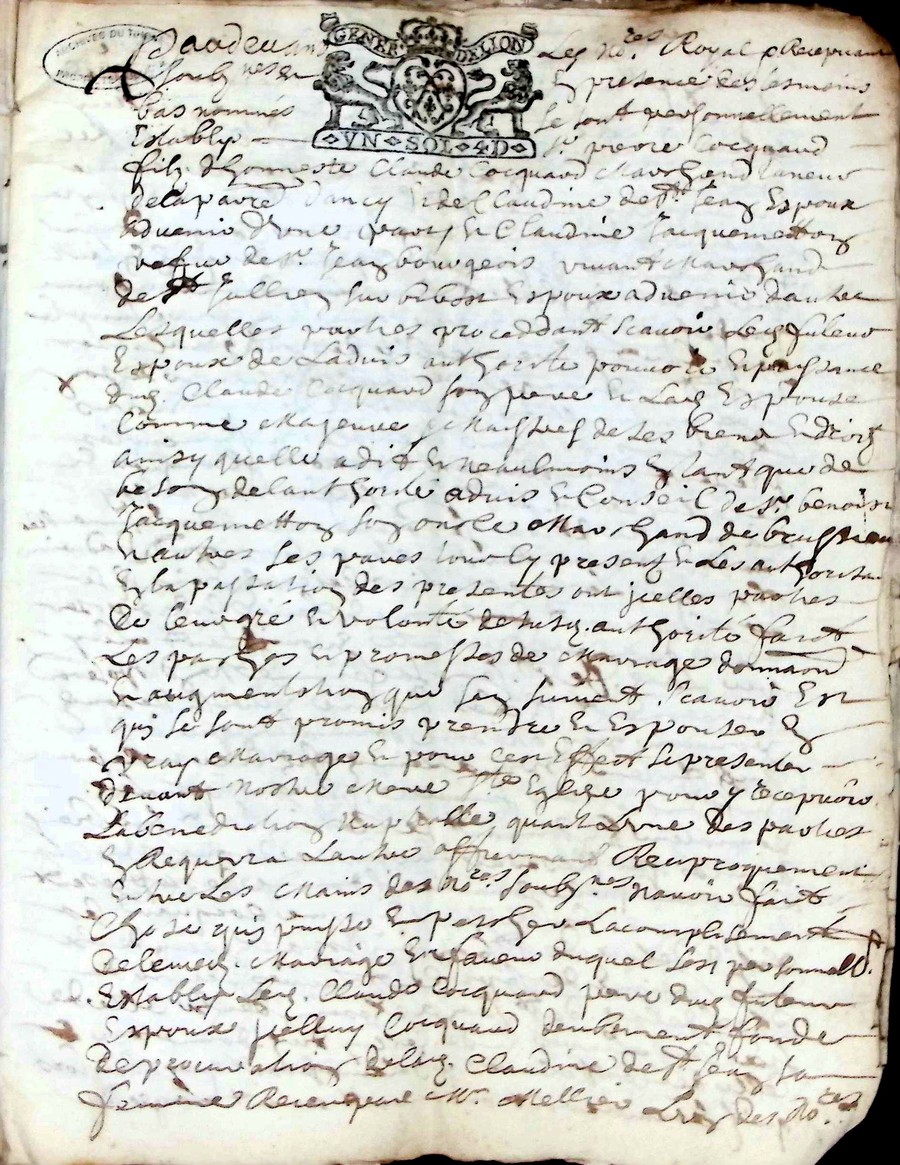 ARCHIVES DU
GENER DE LION
VN SOL 4 D
Pardevant Les No.res Royal Recepvant
soubz.nes et En presence des tesmoins
bas nommés se sont personnellement
Establys Sr. pierre Cocquard
filz d'honneste Claude Cocquard Marchand taneur
de la d'ancy et de Claudine de St Jean Espoux
advenir d'une part, et Claudine Jacquemetton
vefve de Sr. Jean bourgeois vivant Marchand
de St Jullien sur bibost Espouse advenir d'autre
Lesquelles parties proceddant scavoir Led. futeur
Espoux de Ladvis authorité pouvoir et puissance
dud. Claude Cocquard son pere et Lad. Espouse
Comme Majeure et Maistresse de ses biens et droitz
ainsy quelle a dit et neaulmoins En tant que de
besoing de lauthorité advis et Conseil de Sr. benoist
Jacquemetton son oncle Marchand de brussieu
et autres ses pares tous cy present et Les authorisant
En la passation des presentes ont icelles parties
De leur gré et volonté de susd. authorité fait
Les paches et promesses de Mariage donnaon
et augmentation que sen suivent. Scavoir Est
quilz se sont promis prendre et Espouser En
vray Mariage et pour cest Effect se presenter
devant Nostre Mere Ste Eglize pour y recepvoir
La benediction Nuptialle quant L'une des parties
En Requerra Lautre affirmant Reciproquement
Entre Les Mains des No.res soubz.nes navoir fait
Chose quy puisse Empescher Lacomplisement
de leurd. Mariage En faveur duquel sest personnell.
Establys Led. Claude Cocquard pere dud. futeur
Espoux Icelluy Cocquard deubement fondé
de procuration de lad. Claudine de St Jean sa
femme Receue par Me. Mellier L'un des No.res